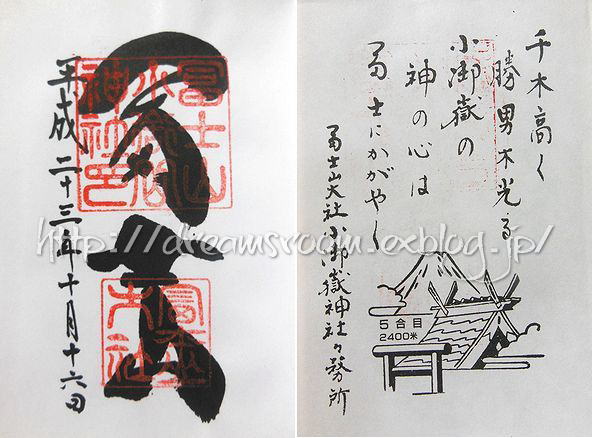 平成二十三年十月十六日
千木高く
勝男木光る
小御嶽の
神の心は
冨士にかがやく
冨士山大社小御嶽神社々務所
5合目
2400米
http://dreamsroom.exblog.jp/